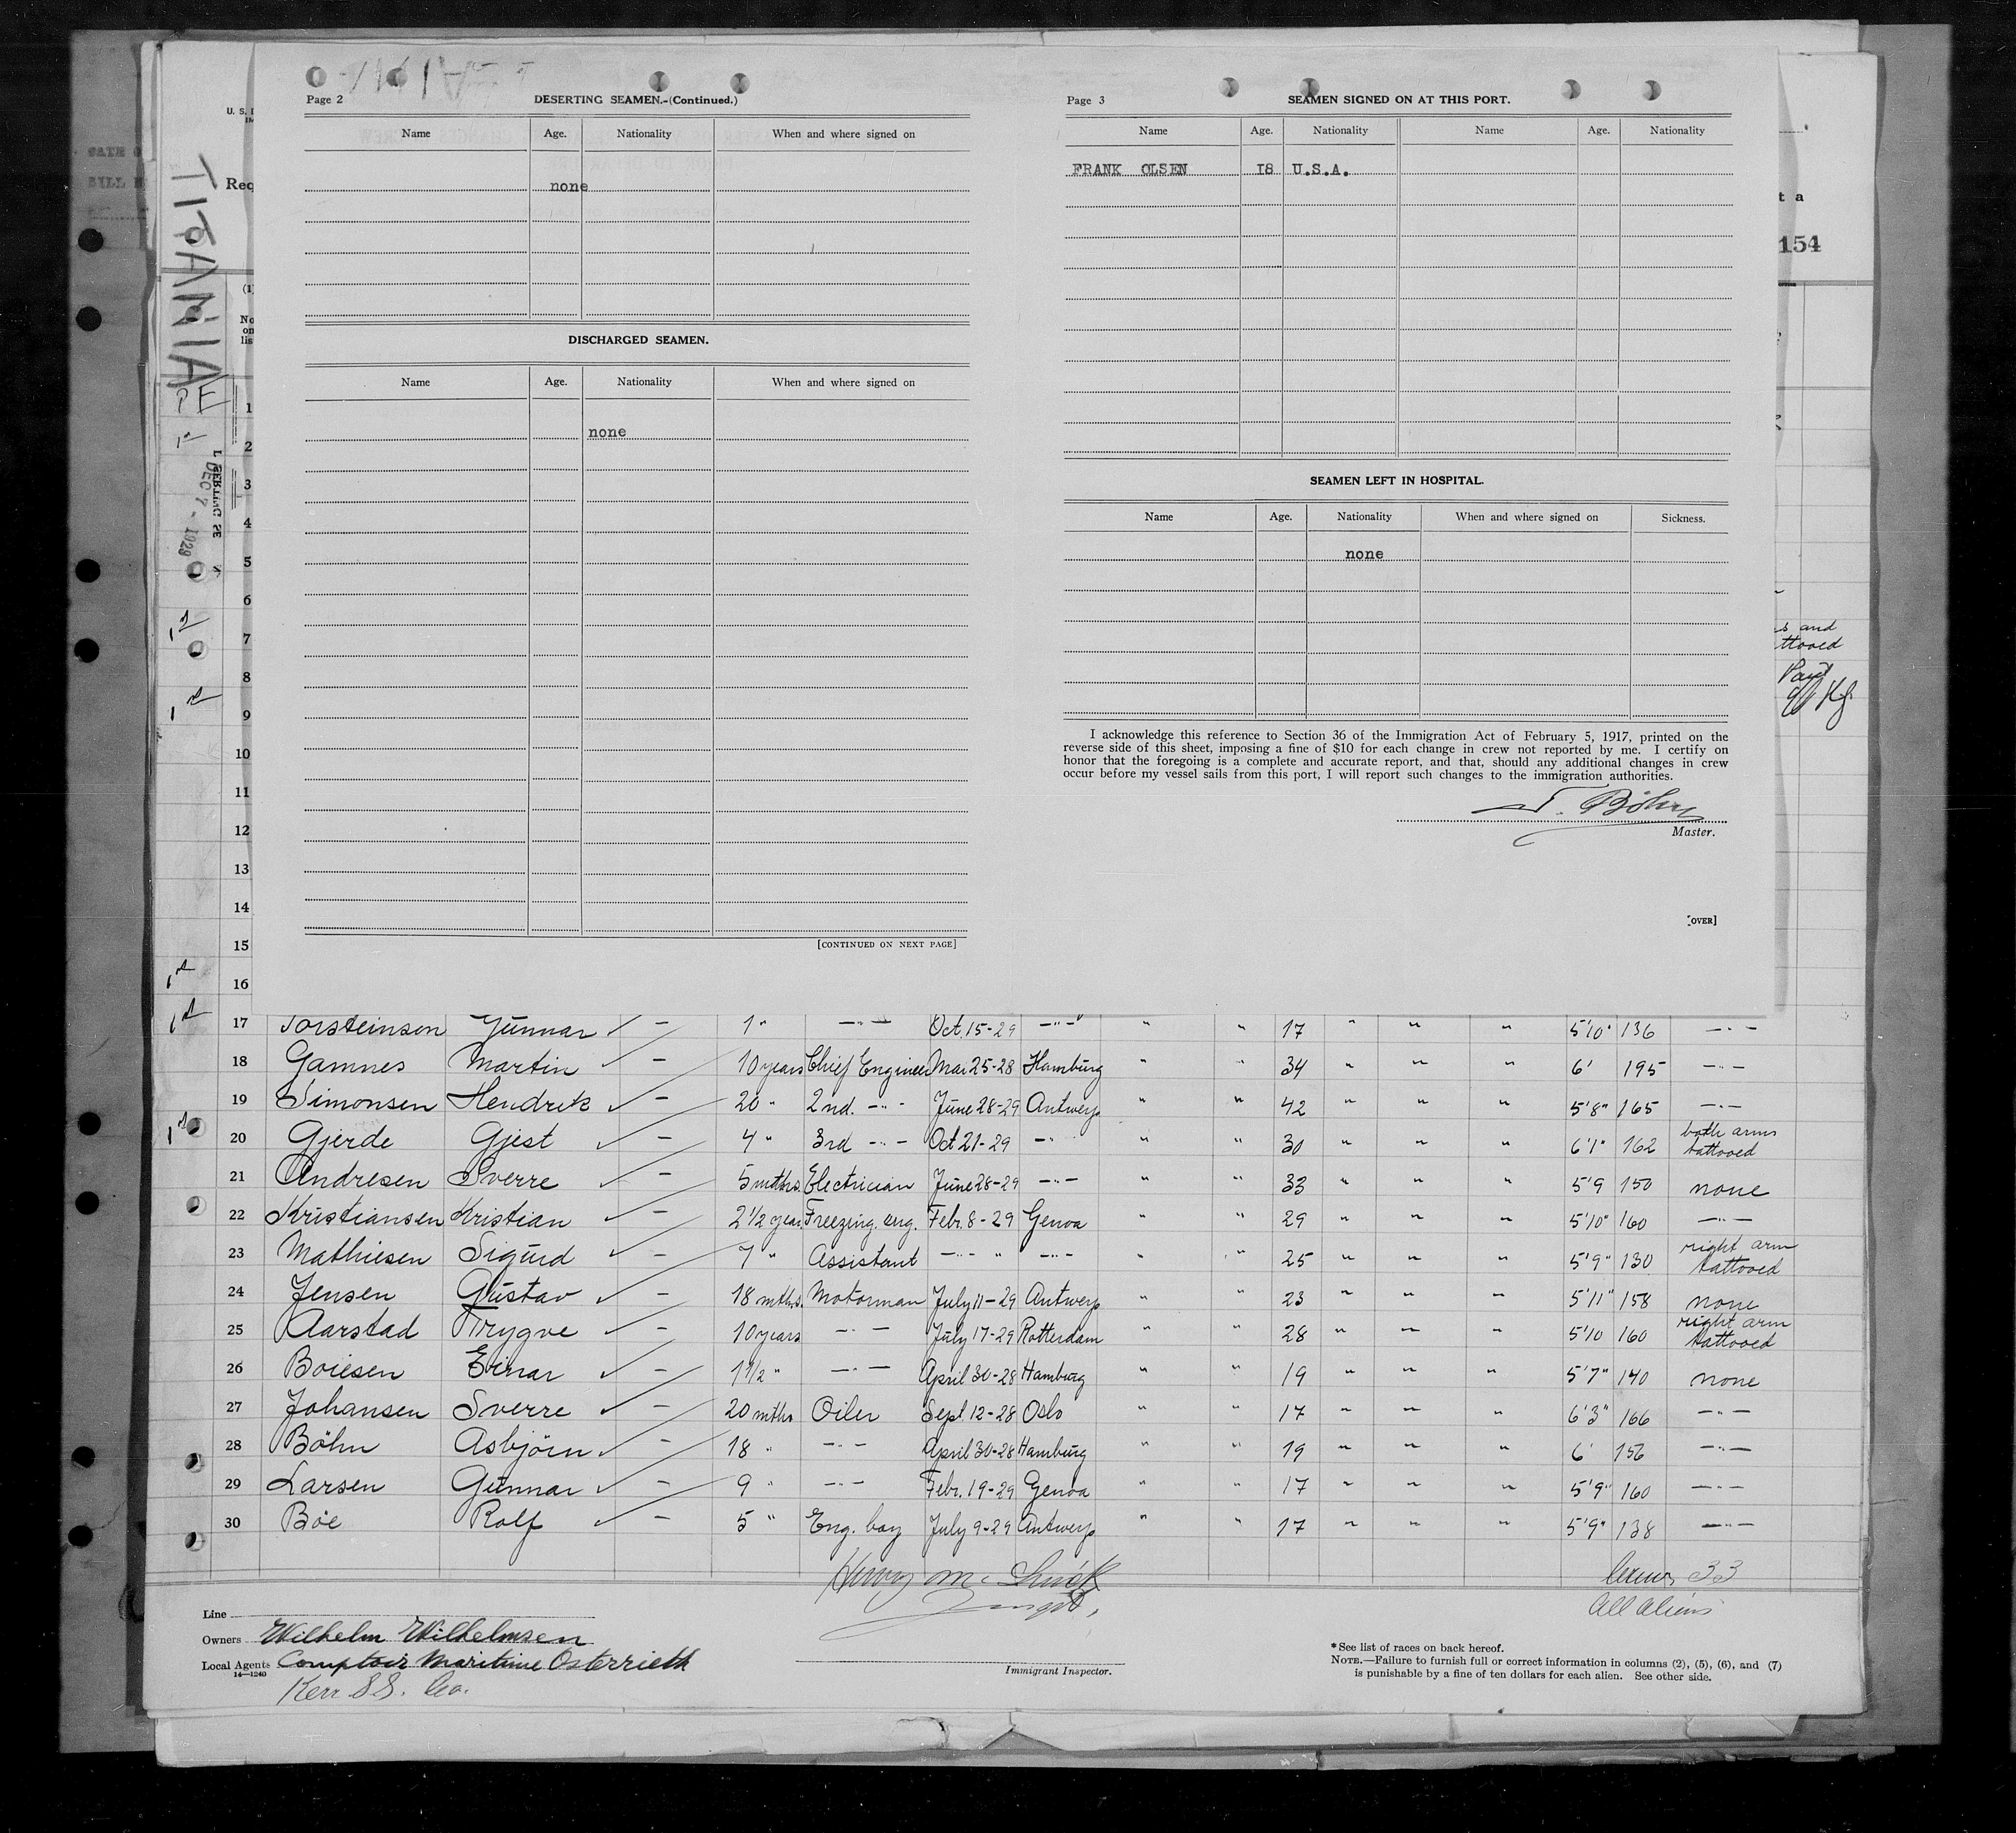 TITANIA
DEC 7 - 1929
U. S.
Req
t a
154
Page 2
DESERTING SEAMEN.-(Continued.)
Name Age. Nationality When and where signed on
none
DISCHARGED SEAMEN.
Name Age. Nationality When and where signed on
none
[CONTINUED ON NEXT PAGE]
Page 3
SEAMEN SIGNED ON AT THIS PORT.
Name Age. Nationality Name Age. Nationality
FRANK OLSEN 18 U.S.A.
SEAMEN LEFT IN HOSPITAL.
Name Age. Nationality When and where signed on Sickness.
none
I acknowledge this reference to Section 36 of the Immigration Act of February 5, 1917, printed on the
reverse side of this sheet, imposing a fine of $10 for each change in crew not reported by me. I certify on
honor that the foregoing is a complete and accurate report, and that, should any additional changes in crew
occur before my vessel sails from this port, I will report such changes to the immigration authorities.
Böhn
Master.
[OVER]
(1)
No
on
lis
1
2
3
4
5
6
7
8
9
10
11
12
13
14
15
16
s and
ttooed
17 Torsteinson Gunnar ✓ — 1 " —"— Oct. 15-29 —"— " " 17 " " " 5'10" 136 —"—
18 Gamnes Martin ✓ — 10 years Chief Engineer Mar 25-28 Hamburg " " 34 " " " 6' 195 —"—
19 Simonsen Hendrik ✓ — 20 " 2nd. —"— June 28-29 Antwerp " " 42 " " " 5'8" 165 —"—
20 Gjerde Gjest ✓ — 4 " 3rd —"— Oct 21-29 —" " " 30 " " " 6'1" 162 both arms tattooed
21 Andresen Sverre ✓ — 5 mths. Electrician June 28-29 —"— " " 33 " " " 5'9 150 none
22 Kristiansen Kristian ✓ — 2 1/2 year Freezing. eng. Febr. 8-29 Genoa " " 29 " " " 5'10" 160 —"—
23 Mathiesen Sigurd ✓ — 7 " Assistant —"— " —"— " " 25 " " " 5'9" 130 right arm tattooed
24 Jensen Gustav ✓ — 18 mths. Motorman July 11-29 Antwerp " " 23 " " " 5'11" 158 none
25 Aarstad Trygve ✓ — 10 years —"— July 17-29 Rotterdam " " 28 " " " 5'10 160 right arm tattooed
26 Boiesen Einar ✓ — 1 1/2 " —"— April 30-28 Hamburg " " 19 " " " 5'7" 140 none
27 Johansen Sverre ✓ — 20 mths Oiler Sept. 12-28 Oslo " " 17 " " " 6'3" 166 —"—
28 Böhn Asbjörn ✓ — 18 " —"— April 30-28 Hamburg " " 19 " " " 6' 156 —"—
29 Larsen Gunnar ✓ — 9 " —"— Febr. 19-29 Genoa " " 17 " " " 5'9" 160 —"—
30 Böe Rolf ✓ — 5 " Eng. boy July 9-29 Antwerp " " 17 " " " 5'9" 138 —"—
33
All aliens
Line
Owners Wilhelm Wilhelmsen
Local Agents Comptoir Maritime Osterrieth
14—1240
Kerr S.S. Co.
Immigrant Inspector.
*See list of races on back hereof.
NOTE.—Failure to furnish full or correct information in columns (2), (5), (6), and (7)
is punishable by a fine of ten dollars for each alien. See other side.